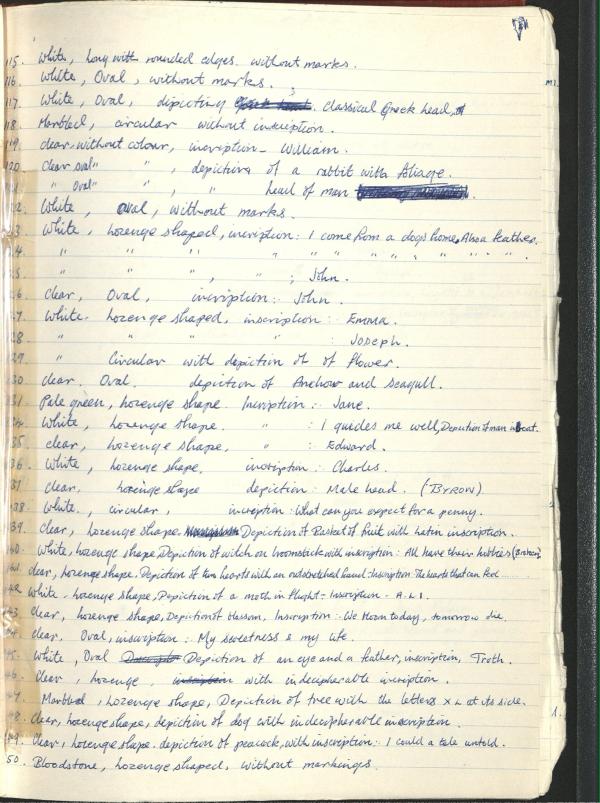 115. White, long with rounded edges. without marks.
116. White, Oval, without marks.
117. White, Oval, depicting classical Greek head,
118. Marbled, circular without inscription.
119. clear, without colour, incription - William.
120. Clear oval " " , depictions of a rabbit with foliage.
" Oval " " , " head of man
White, oval, without marks.
White, lozenge shaped, incription: I come from a dogs home, Also a feather.
" " " " " " " " " " .
" " " , " ; John.
clear, Oval, incription: John.
White. lozenge shaped, inscription: Emma.
" " " " : Joseph.
" Circular with depiction of of flower.
clear. Oval. depiction of Anchor and Seagull.
Pale green, lozenge shape. Incription: Jane.
White, lozenge shape. " : I guides me well, Depiction of man in boat.
clear, lozenge shape, " : Edward.
White, lozenge shape, incription: Charles.
Clear, lozenge shape depiction: Male head. (BYRON)
White, circular, incription: What can you expect for a penny.
Clear, lozenge shape. Depiction of Basket of fruit with Latin inscription.
White, lozenge shape, Depiction of witch on broomstick with inscription: All have their hobbies (Broken)
clear, lozenge shape. Depiction of two hearts with an outstretched hand. Inscription: The hearts that can feel ......
White. lozenge shape, Depiction of a moth in flight. Inscription - A.L.I.
Clear, lozenge shape, Depiction of blossom, Inscription: We bloom today, tomorrow die.
clear, Oval, inscription: My sweetness & my life.
White, Oval Depiction of an eye and a feather, inscription, Truth.
Clear, lozenge, with indecipherable incription.
Marbled, lozenge shape, Depiction of tree with the letters X L at its side.
Clear, lozenge shape, depiction of dog with indecipherable inscription.
Clear, lozenge shape. depiction of peacock, with inscription: I could a tale unfold.
50. Bloodstone, lozenge shaped, without markings.